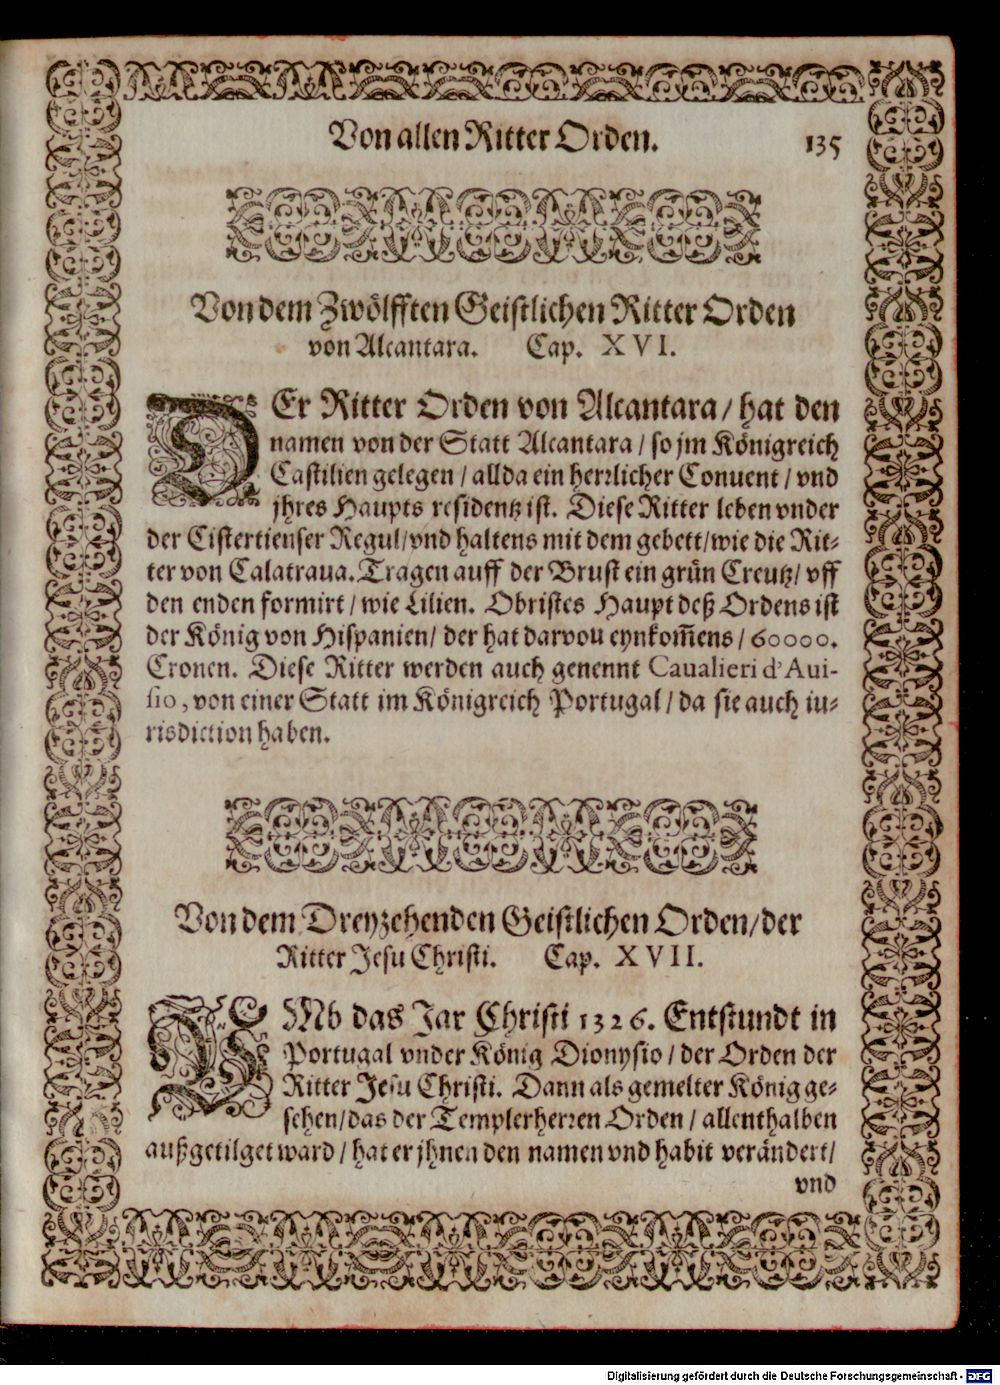 Von allen Ritter Orden. 135
Von dem Zwölfften Geistlichen Ritter Orden
von Alcantara. Cap. XVI.
DEr Ritter Orden von Alcantara / hat den
namen von der Statt Alcantara / so jm Königreich
Castilien gelegen / allda ein herrlicher Conuent / vnd
jhres Haupts residentz ist. Diese Ritter leben vnder
der Cistertienser Regul/vnd haltens mit dem gebett/wie die Rit-
ter von Calatraua. Tragen auff der Brust ein grün Creutz/ vff
den enden formirt / wie Lilien. Obristes Haupt deß Ordens ist
der König von Hispanien/ der hat darvou eynkom̃ens / 60000.
Cronen. Diese Ritter werden auch genennt Caualieri d'Aui-
sio, von einer Statt im Königreich Portugal / da sie auch iu-
risdiction haben.
Von dem Dreyzehenden Geistlichen Orden/der
Ritter Jesu Christi. Cap. XVII.
VMb das Jar Christi 1326. Entstundt in
Portugal vnder König Dionysio / der Orden der
Ritter Jesu Christi. Dann als gemelter König ge-
sehen/das der Templerherren Orden / allenthalben
außgetilget ward / hat er jhnen den namen vnd habit verändert/
vnd
Digitalisierung gefördert durch die Deutsche Forschungsgemeinschaft - DFG